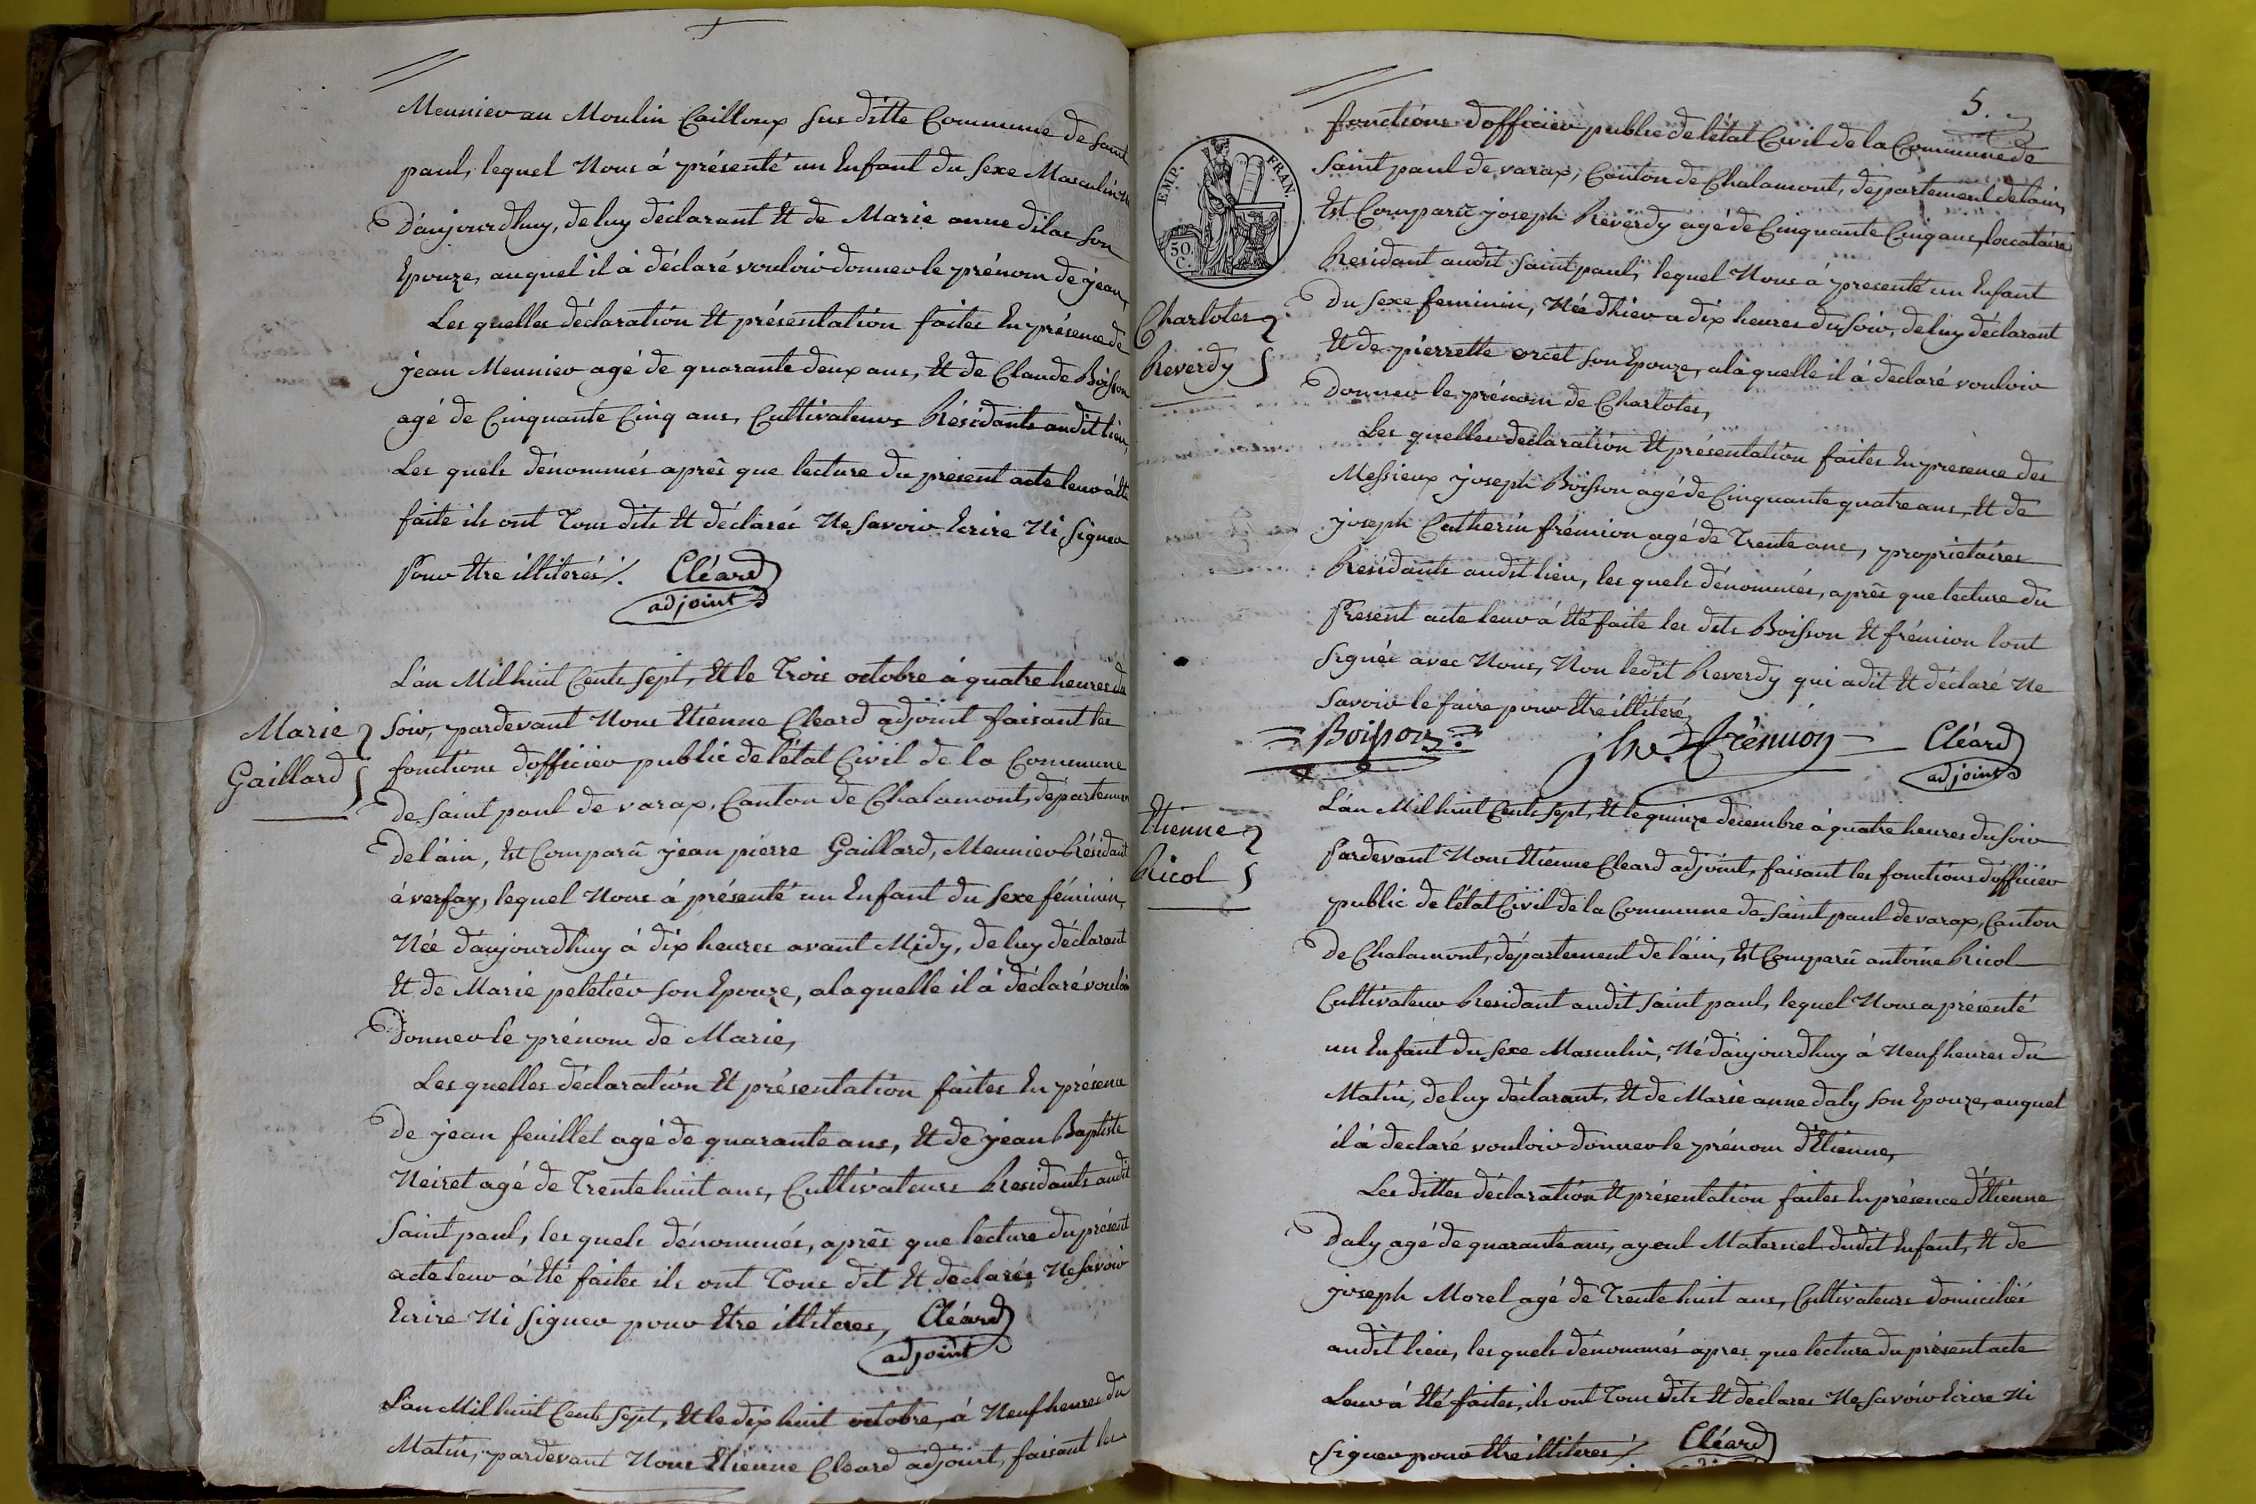 Meunier au Moulin Cailloux sus ditte Commune de Saint
paul, lequel Nous à présenté un Enfant du Sexe Masculin né
D'aujourdhuy, de luy déclarant Et de Marie anne dilas son
Epouze, auquel il à déclaré vouloir donner le prénom de jean,
Les quelles déclaration Et présentation faites En présence de
jean Meunier agé de quarante deux ans, Et de Claude Boisson
agé de Cinquante Cinq ans, Cultivateurs Résidants audit lieu,
Les quels dénommés après que lecture du présent acte leur à Eté
faite ils ont Tous dits Et déclarés Ne Savoir Ecrire Ni Signer
Pour Etre illiterés ⁄. Cléard
adjoint
L'an Mil huit Cents Sept, Et le Trois octobre à quatre heures du
Marie
Soir, pardevant Nous Etienne Cleard adjoint faisant les
Gaillard
fonctions d'officier public de l'état Civil de la Commune
De Saint paul de varax, Canton de Chalamont, departement
De l'ain, Est Comparû jean pierre Gaillard, Meunier Résidant
à verfay, lequel Nous à présenté un Enfant du Sexe féminin,
Née d'aujourdhuy à dix heures avant Midy, de luy déclarant
Et de Marie peletier son Epouze, a la quelle il à déclaré vouloir
Donner le prénom de Marie,
Les quelles déclaration Et présentation faites En présence
De jean feuillet agé de quarante ans, Et de jean Baptiste
Néiret agé de Trente huit ans, Cultivateurs Residants audit
Saint paul, les quels dénommés, après que lecture du présent
acte leur à Eté faites ils ont Tous dit Et declarés Ne Savoir
Ecrire Ni Signer pour Etre illiteres, Cléard
adjoint
L'an Mil huit Cents Sept, Et le dix huit octobre, à Neuf heures du
Matin, pardevant Nous Etienne Cleard adjoint, faisant les
5.
fonctions d'officier public de l'état Civil de la Commune de
Saint paul de varax, Canton de Chalamont, departement de lain,
EMP. FRAN.
50 C.
Est Comparû joseph Reverdy agé de Cinquante Cinq ans, loccataire
Residant audit Saint paul, lequel Nous à presenté un Enfant
Charlotes
Du Sexe feminin, Née d'hier a dix heures du Soir, de luy déclarant
Reverdy
Et de pierrette orcet son Epouze, a la quelle il à declaré vouloir
Donner le prénom de Charlotes,
Les quelles declaration Et présentation faites En presence des
Messieux joseph Boisson agé de Cinquante quatre ans, Et de
joseph Catherin frémion agé de Trente ans, proprietaires
Residants audit lieu, les quels dénommés, après que lecture du
Présent acte leur à Eté faite les dits Boisson Et frémion l'ont
Signés avec Nous, Non ledit Reverdy qui a dit Et déclaré Ne
Savoir le faire pour Etre illiteré
Boisson jh C. frémion Cléard
adjoint
L'an Mil huit Cents Sept, Et le quinze decembre à quatre heures du Soir
Etienne
Pardevant Nous Etienne Cleard adjoint, faisant les fonctions d'officier
Ricol
public de l'état Civil de la Commune de Saint paul de varax, Canton
De Chalamont, département de l'ain, Est Comparû antoine Ricol
Cultivateur Residant audit Saint paul, lequel Nous a présenté
un Enfant du Sexe Masculin, Né d'aujourdhuy à Neuf heures du
Matin, de luy déclarant, Et de Marie anne daly son Epouze, auquel
il à declaré vouloir donner le prénom d'Etienne,
Les dittes déclaration Et présentation faites En présence d'Etienne
Daly agé de quarante ans, ayeul Maternel dudit Enfant, Et de
joseph Morel agé de Trente huit ans, Cultivateurs domiciliés
audit lieu, les quels dénommés apres que lecture du présent acte
Leur à Eté faites, ils ont Tous dits Et declares Ne Savoir Ecrire Ni
Signer pour Etre illiteres ⁄. Cléard